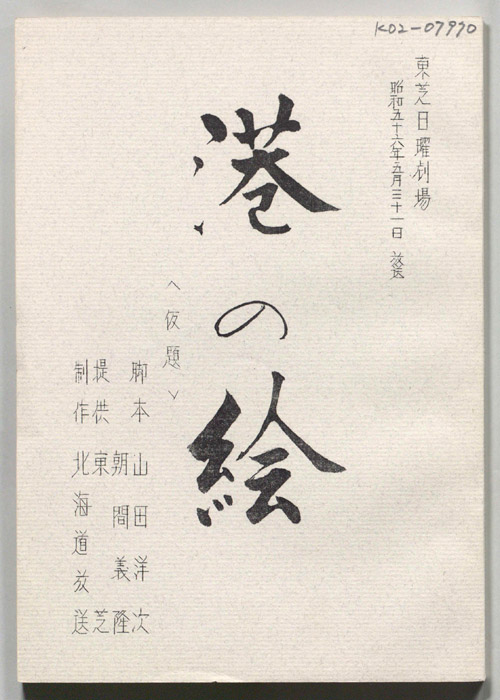 K02-07970
東芝日曜劇場
昭和五十六年五月三十一日 放送
港の絵
〈仮題〉
脚本 山田洋次
朝間義隆
提供 東芝
制作 北海道放送